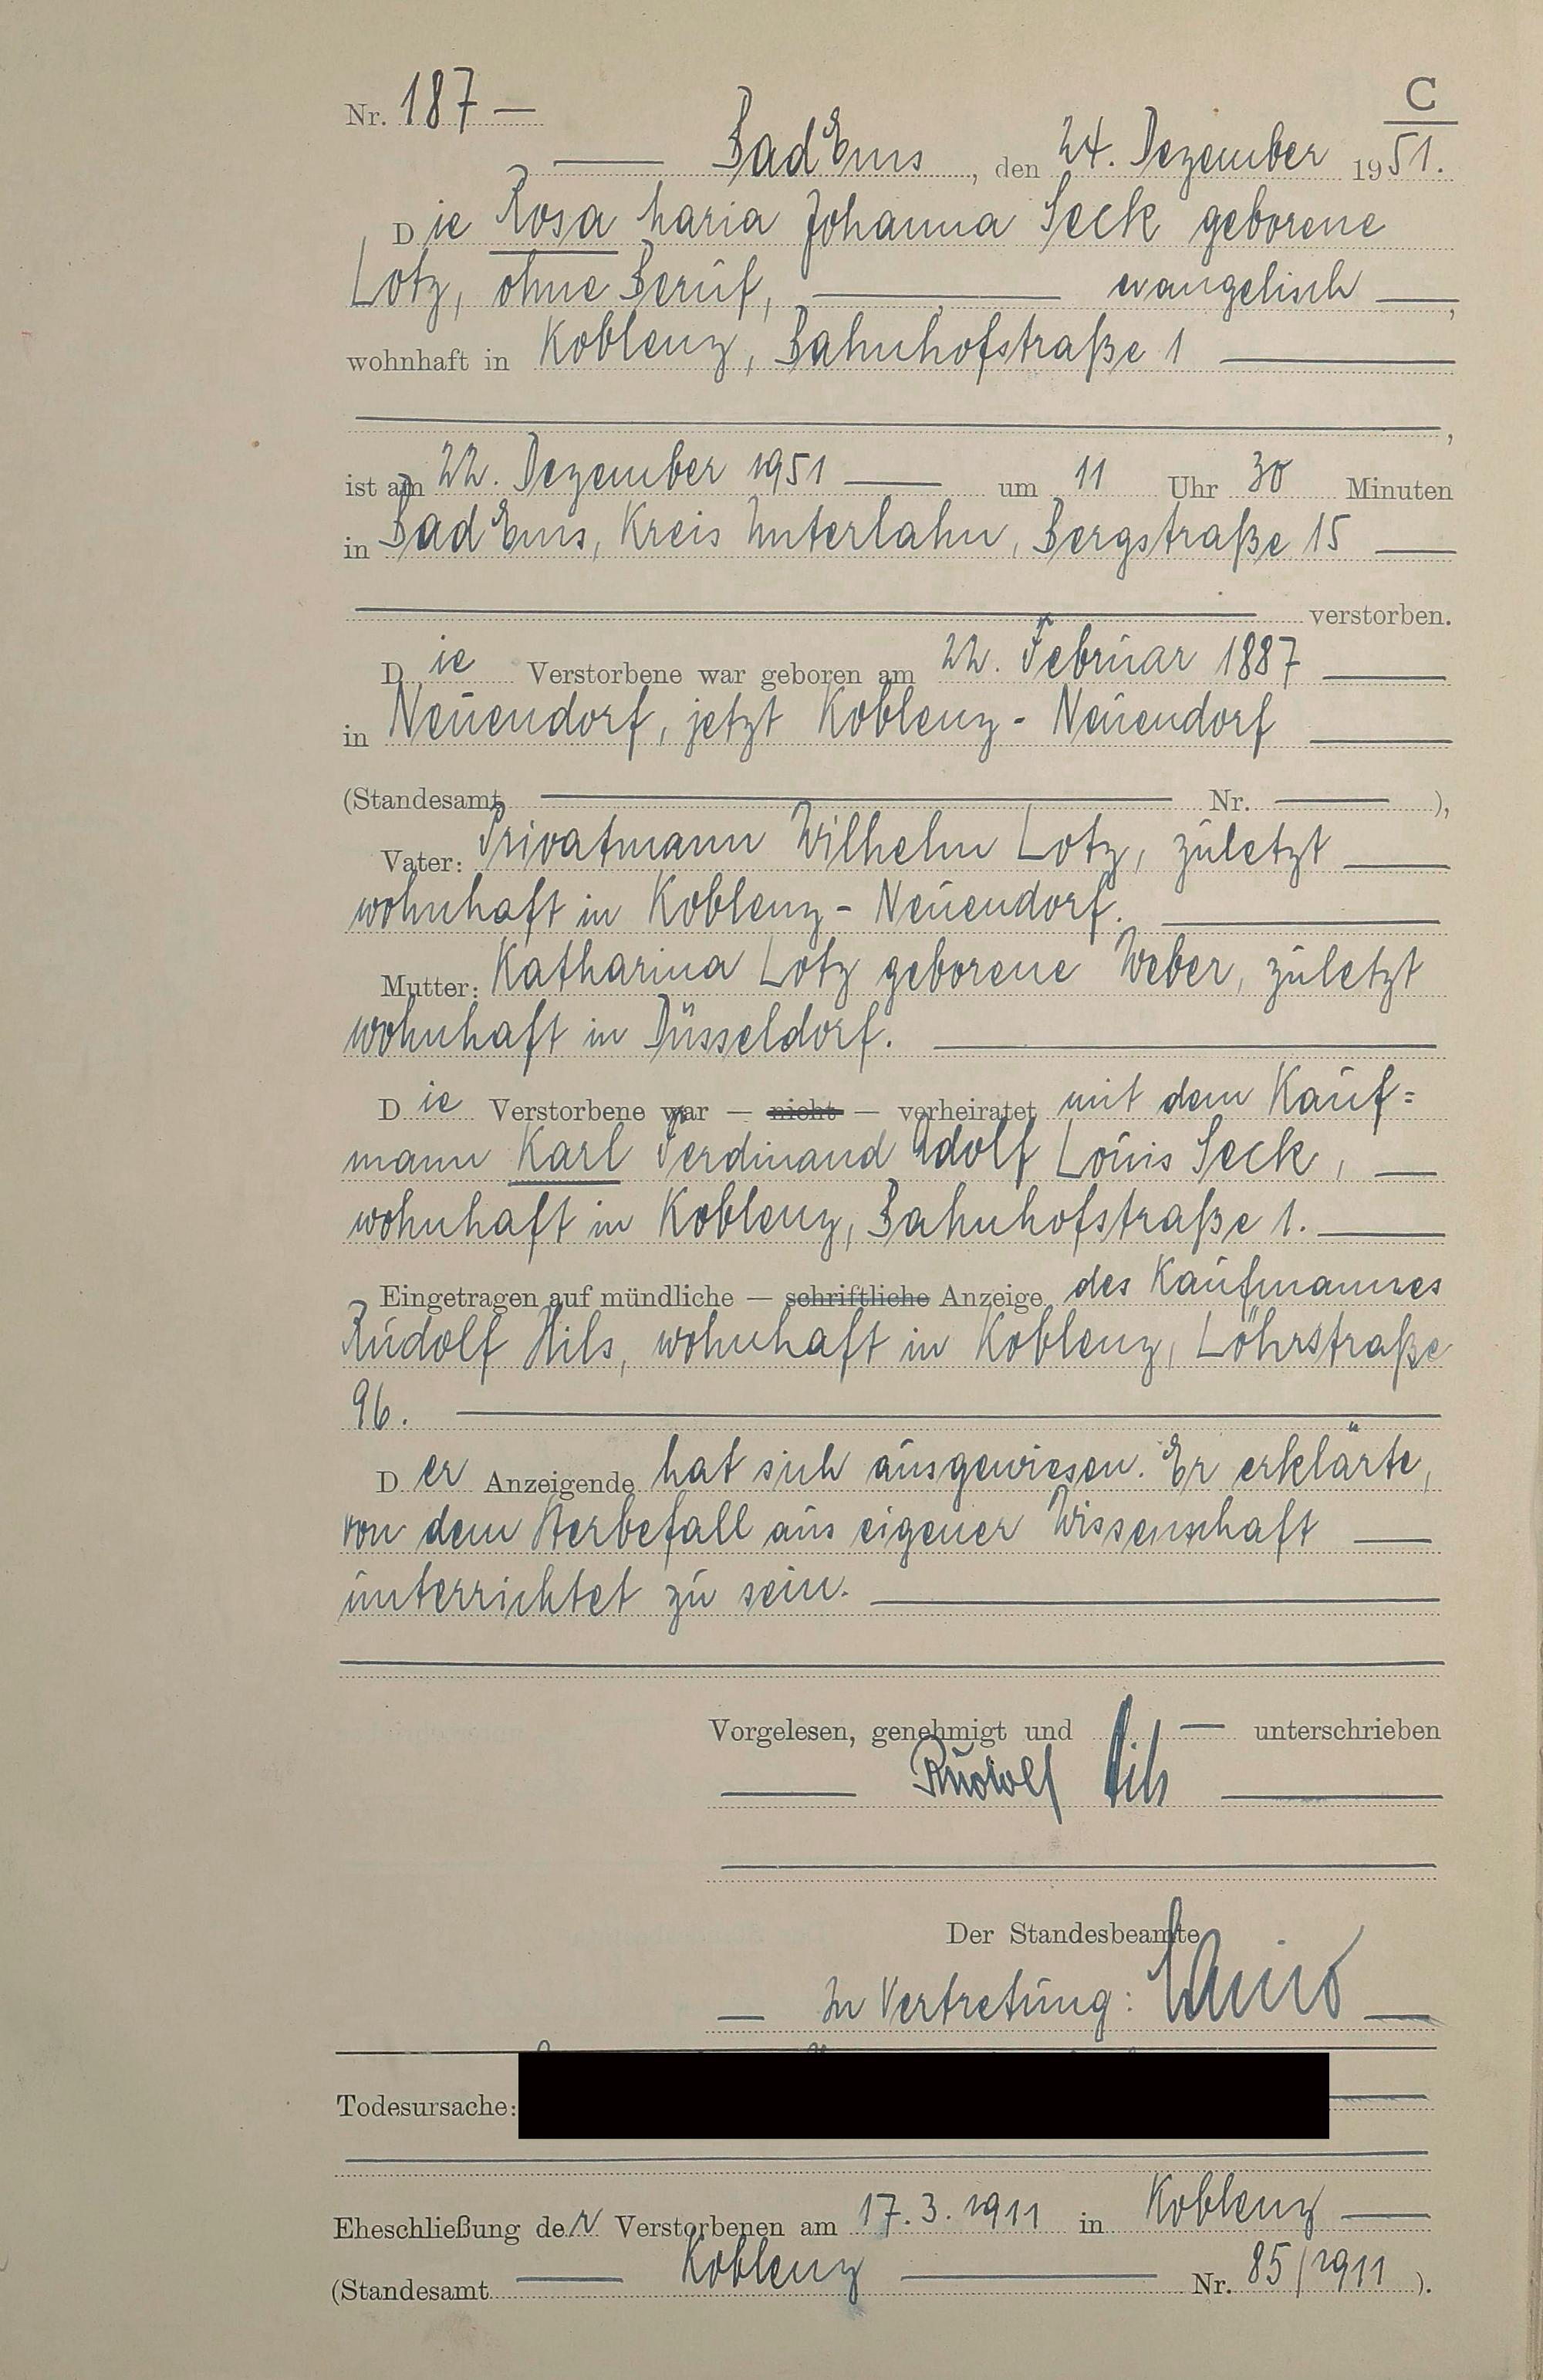 Nr. 187 —
C
Bad Ems, den 24. Dezember 1951.
Die Rosa Maria Johanna Seck geborene
Lotz, ohne Beruf, — evangelisch —,
wohnhaft in Koblenz, Bahnhofstraße 1 —
,
ist am 22. Dezember 1951 — um 11 Uhr 30 Minuten
in Bad Ems, Kreis Unterlahn, Bergstraße 15 —
verstorben.
Die Verstorbene war geboren am 22. Februar 1887 —
in Neuendorf, jetzt Koblenz-Neuendorf —
(Standesamt — Nr. — ),
Vater: Privatmann Wilhelm Lotz, zuletzt —
wohnhaft in Koblenz-Neuendorf. —
Mutter: Katharina Lotz geborene Weber, zuletzt
wohnhaft in Düsseldorf. —
Die Verstorbene war — nicht — verheiratet mit dem Kauf=
mann Karl Ferdinand Adolf Louis Seck, —
wohnhaft in Koblenz, Bahnhofstraße 1. —
Eingetragen auf mündliche — schriftliche Anzeige des Kaufmannes
Rudolf Hils, wohnhaft in Koblenz, Löhrstraße
96. —
Der Anzeigende hat sich ausgewiesen. Er erklärte,
von dem Sterbefall aus eigener Wissenschaft —
unterrichtet zu sein. —
Vorgelesen, genehmigt und — unterschrieben
— Rudolf Hils —
Der Standesbeamte
— In Vertretung: —
Todesursache:
Eheschließung der Verstorbenen am 17.3.1911 in Koblenz —
(Standesamt — Koblenz — Nr. 85/1911 ).